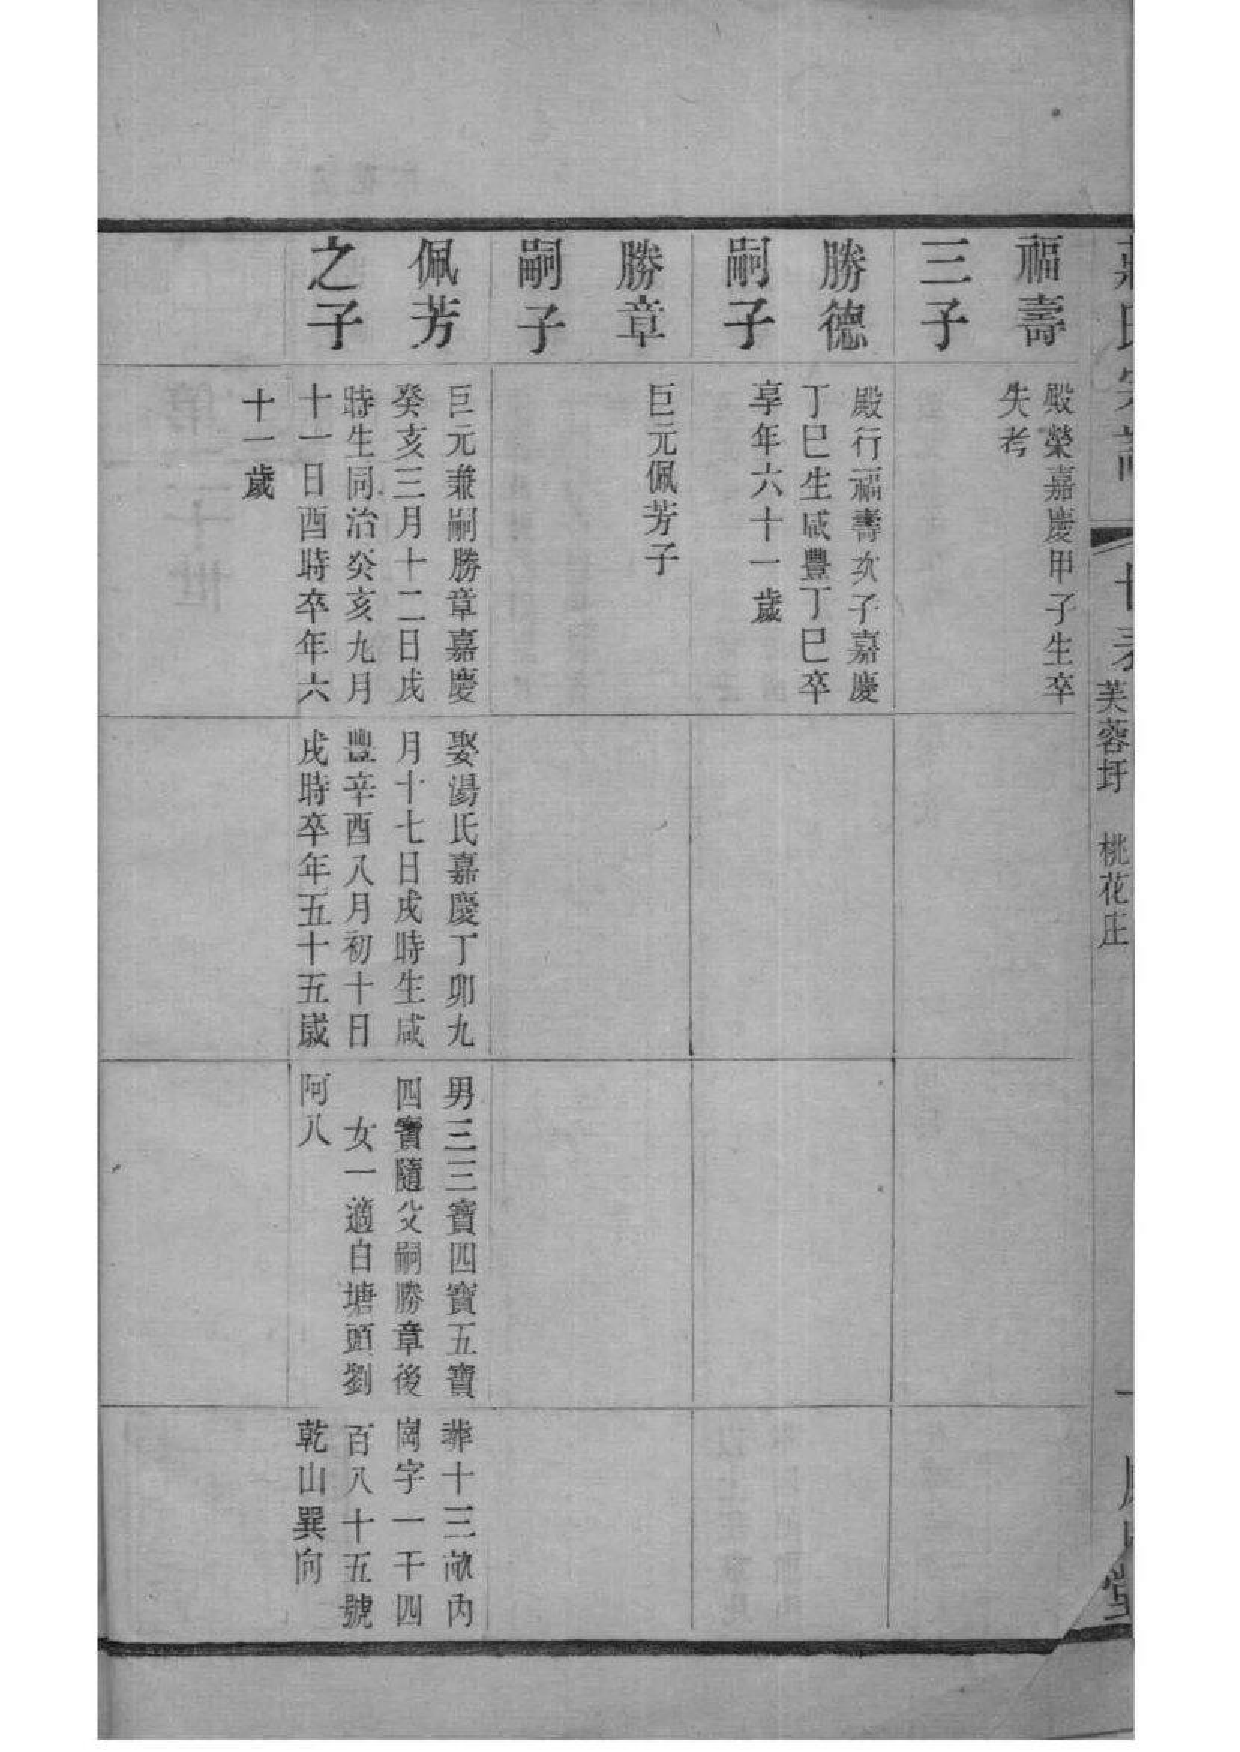 氏宗譜
十 表
芙蓉圩 桃花庄
堂
福壽
三子
殿榮嘉慶甲子生卒
失考
勝德
嗣子
殿行福壽次子嘉慶
丁巳生咸豐丁巳卒
享年六十一歲
勝章
嗣子
巨元佩芳子
佩芳
之子
巨元兼嗣勝章嘉慶
癸亥三月十二日戌
時生同治癸亥九月
十一日酉時卒年六
十一歲
娶湯氏嘉慶丁卯九
月十七日戌時生咸
豐辛酉八月初十日
戌時卒年五十五歲
男三三寶四寶五寶
四寶隨父嗣勝章後
女一適白塘頭劉
阿八
葬十三畝內
岡字一千四
百八十五號
乾山巽向